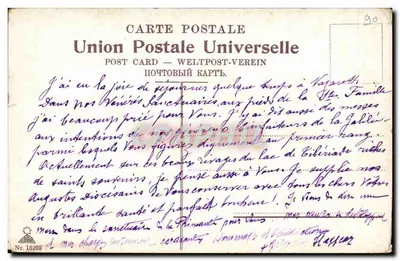 90
CARTE POSTALE
Union Postale Universelle
POST CARD — WELTPOST-VEREIN
ПОЧТОВЫЙ КАРТЪ.
J'ai eu la joie de séjourner quelque temps à Nazareth
Dans nos Vénérés Sanctuaires, aux pieds de la Ste Famille
j'ai beaucoup prié pour Vous. J'y ai dit aussi des messes
aux intentions de nos bienfaiteurs de la Galilée
parmi lesquels Vous figurez dignement au premier rang
Actuellement sur ces beaux rivages du lac de Tibériade riches
de saints souvenirs, je pense aussi à Vous. Je supplie nos
augustes Divins de Vous conserver avec tous les chers Vôtres
en brillante santé et parfait bonheur! Je viens de dire une
messe dans le sanctuaire à la Primauté pour Vous
et nos chers hommages et
Nr. 15205